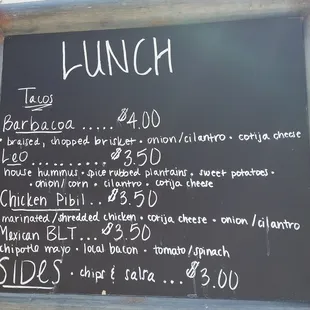 LUNCH
Tacos
Barbacoa ..... $4.00
• braised, chopped brisket • onion/cilantro • cotija cheese
Leo .......... $3.50
house hummus • spice rubbed plantains • sweet potatoes •
onion/corn • cilantro • cotija cheese
Chicken Pibil .. $3.50
marinated/shredded chicken • cotija cheese • onion/cilantro
Mexican BLT ... $3.50
chipotle mayo • local bacon • tomato/spinach
SIDES • chips & salsa ... $3.00